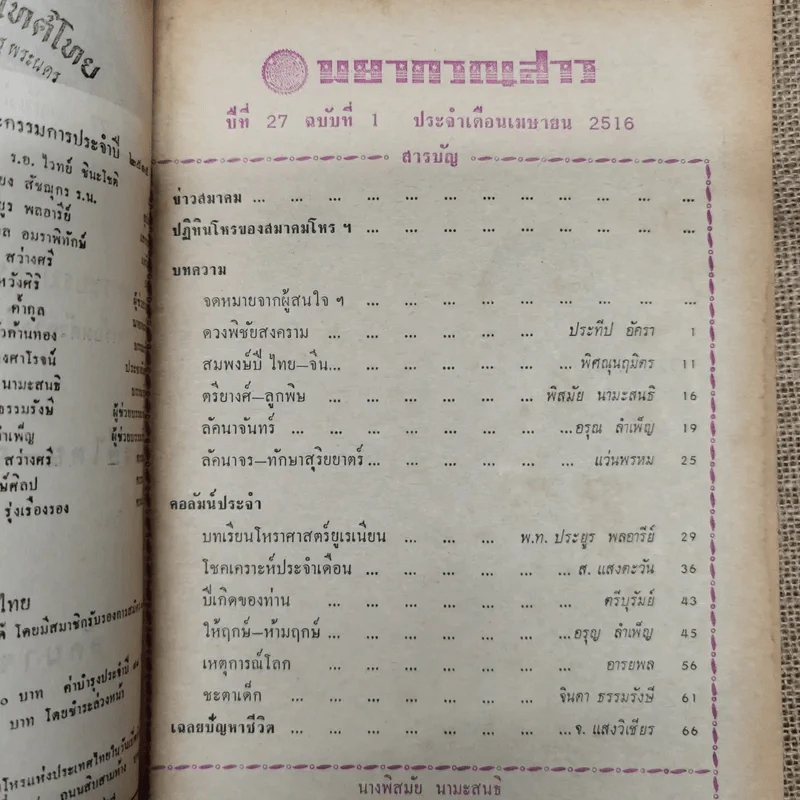 เทศไทย
พระนคร
ะกรรมการประจำปี ๒๕๑๕
ร.อ. ไวทย์ ชินะโชติ
สัชฌุกร ร.น.
พลอารีย์
อมราพิทักษ์
สว่างศรี
หวังศิริ
ค้ำกูล
ด้านทอง
งศาโรจน์
นามะสนธิ
ธรรมรังษี
ำเพ็ญ
สว่างศรี
ษ์ศิลป
รุ่งเรืองรอง
ไทย
โดยมีสมาชิกรับรองการสมัคร
บาท ค่าบำรุงประจำปี
บาท โดยชำระล่วงหน้า
โหรแห่งประเทศไทยในวัน
ถนนสิบสามห้าง
พยากรณสาร
ปีที่ 27 ฉบับที่ 1 ประจำเดือนเมษายน 2516
สารบัญ
ข่าวสมาคม ... ... ... ... ... ... ... ... ...
ปฏิทินโหรของสมาคมโหร ฯ ... ... ... ... ... ... ...
บทความ
จดหมายจากผู้สนใจ ฯ ... ... ... ... ... ... ...
ดวงพิชัยสงคราม ... ... ... ... ... ประทีป อัครา 1
สมพงษ์ปี ไทย—จีน... ... ... ... ... ... พิศณุนฤมิตร 11
ตรียางศ์—ลูกพิษ ... ... ... ... ... พิสมัย นามะสนธิ 16
ลัคนาจันทร์ ... ... ... ... ... ...อรุณ ลำเพ็ญ 19
ลัคนาจร—ทักษาสุริยยาตร์ ... ... ... ... ... แว่นพรหม 25
คอลัมน์ประจำ
บทเรียนโหราศาสตร์ยูเรเนียน ... ... ... พ.ท. ประยูร พลอารีย์ 29
โชคเคราะห์ประจำเดือน ... ... ... ... ... ...ส. แสงตะวัน 36
ปีเกิดของท่าน ... ... ... ... ... ... ตรีบุรัมย์ 43
ให้ฤกษ์—ห้ามฤกษ์ ... ... ... ... ... ...อรุญ ลำเพ็ญ 45
เหตุการณ์โลก ... ... ... ... ... ... อารยพล 56
ชะตาเด็ก ... ... ... ... ... ... จินดา ธรรมรังษี 61
เฉลยปัญหาชีวิต ... ... ... ... ... ... ...จ. แสงวิเชียร 66
นางพิสมัย นามะสนธิ